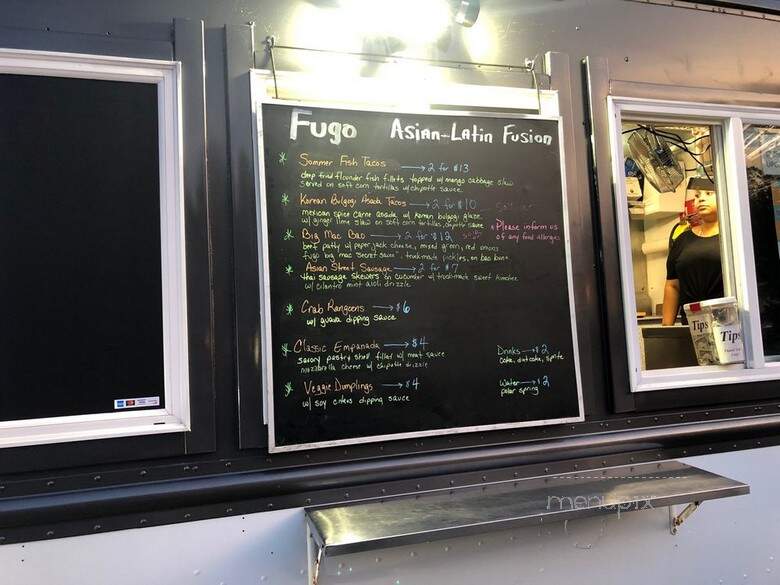 Fugo Asian-Latin Fusion
Summer Fish Tacos → 2 for $13
deep fried flounder fish fillets topped w/ mango cabbage slaw
served on soft corn tortillas w/ chipotle sauce
Korean Bulgogi Asada Tacos → 2 for $10
mexican spice carne asada w/ korean bulgogi glaze
w/ ginger lime slaw on soft corn tortillas, chipotle sauce
Big Mac Bao → 2 for $12
beef patty w/ pepper jack cheese, mixed green, red onions
fugo big mac "secret sauce", truckmade pickles, on bao buns
Asian Street Sausage → 2 for $7
thai sausage skewers on cucumber w/ truckmade sweet kimchee
w/ cilantro mint aioli drizzle
Crab Rangoons → $6
w/ guava dipping sauce
Classic Empanada → $4
savory pastry shell filled w/ meat sauce
mozzarella cheese w/ chipotle drizzle
Veggie Dumplings → $4
w/ soy citrus dipping sauce
* Please inform us
of any food allergies
Drinks → $2
coke, diet coke, sprite
Water → $2
polar spring
Tips
Tips
menupix